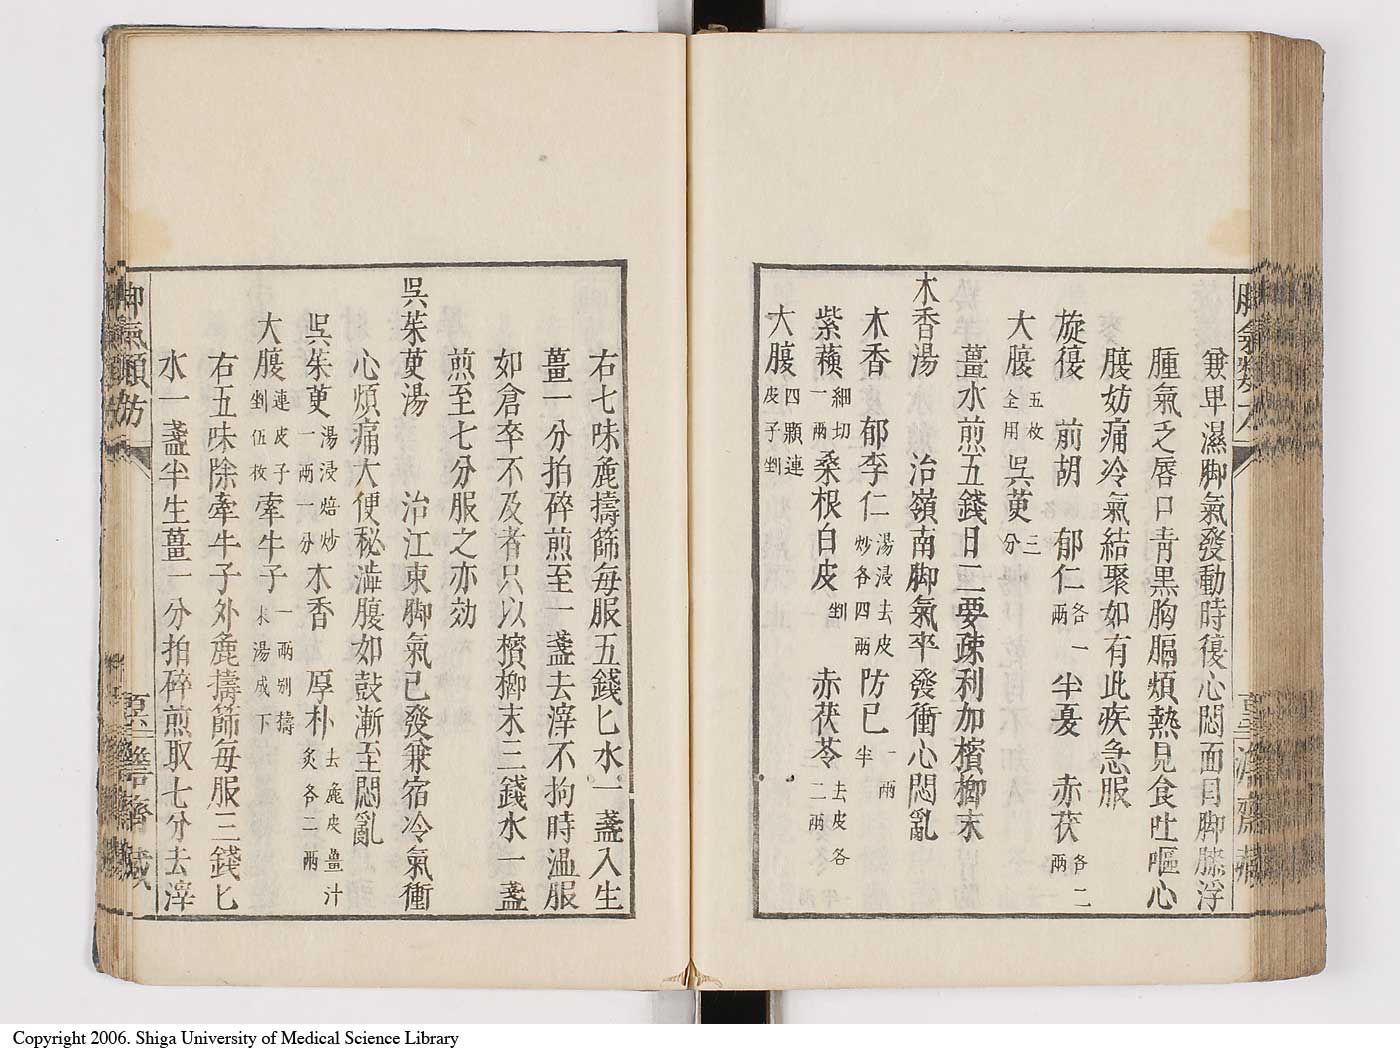 兼卑濕脚氣發動時復心悶面目脚膝浮
腫氣乏唇口靑黒胸膈煩熱見食吐嘔心
腹妨痛冷氣結聚如有此疾急服
旋復　前胡　郁仁各一兩　半夏　赤茯各二兩
大腹五枚全用　呉茰三分
薑水煎五錢日二要疎利加檳榔末
木香湯　治嶺南脚氣卒發衝心悶亂
木香　郁李仁湯浸去皮炒各四兩　防已一兩半
紫蘓細切一兩　桑根白皮剉　赤茯苓去皮各二兩
大腹四顆連皮子剉
右七味麁擣篩毎服五錢匕水一盞入生
薑一分拍碎煎至一盞去滓不拘時温服
如倉卒不及者只以檳榔末三錢水一盞
煎至七分服之亦効
呉茱茰湯　治江東脚氣已發兼宿冷氣衝
心煩痛大便秘澁腹如鼓漸至悶亂
呉茱茰湯浸焙炒一兩一分　木香　厚朴去麁皮薑汁炙各二兩
大腹連皮子剉伍枚　牽牛子一兩别擣末湯成下
右五味除牽牛子外麁擣篩毎服三錢匕
水一盞半生薑一分拍碎煎取七分去滓
脚氣類方